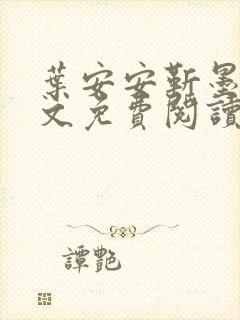 葉安安靳墨
文免費閱讀
譚艷